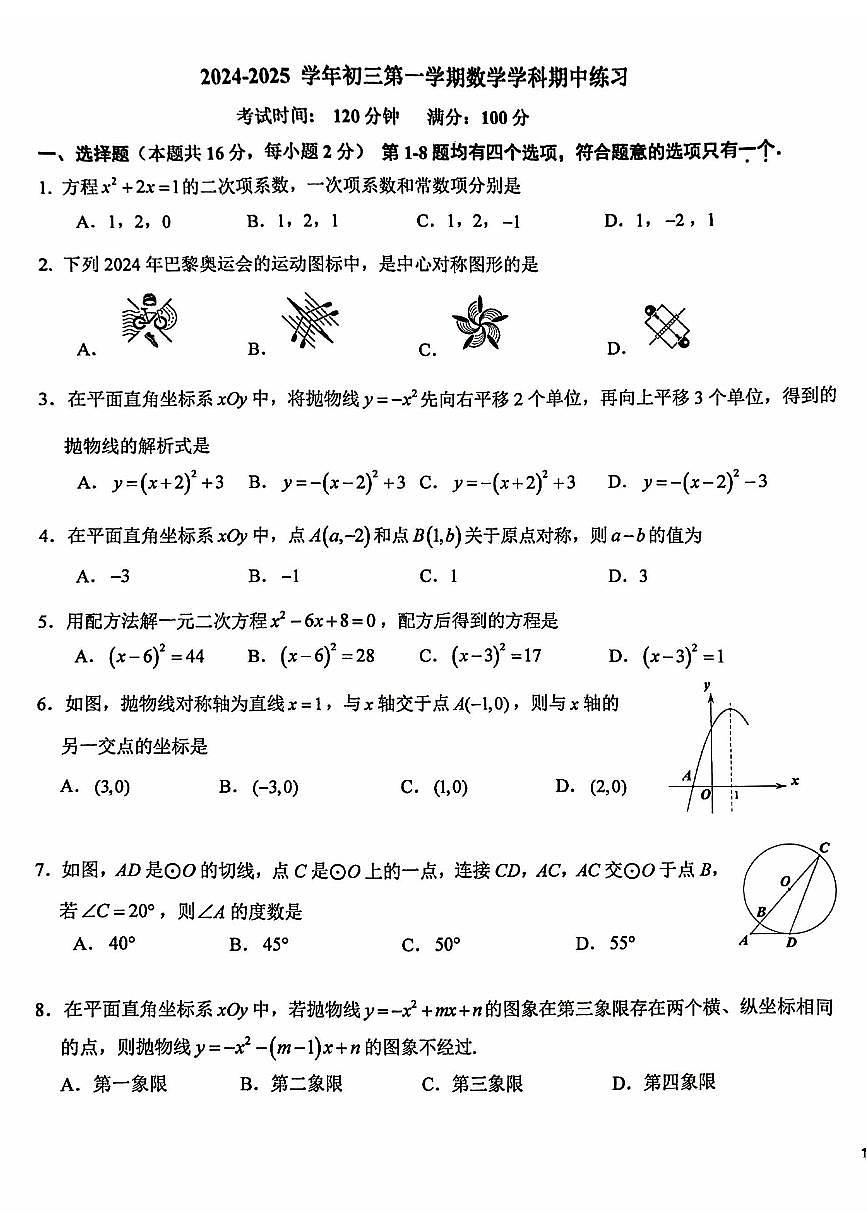 2024-2025 学年初三第一学期数学学科期中练习
考试时间： 120 分钟 满分：100 分
一、选择题（本题共 16 分，每小题 2 分） 第 1-8 题均有四个选项，符合题意的选项只有一个.
1. 方程 x² + 2x = 1 的二次项系数，一次项系数和常数项分别是
A. 1，2，0 B. 1，2，1 C. 1，2，-1 D. 1，-2，1
2. 下列 2024 年巴黎奥运会的运动图标中，是中心对称图形的是
A. B. C. D.
3. 在平面直角坐标系 xOy 中，将抛物线 y = -x² 先向右平移 2 个单位，再向上平移 3 个单位，得到的
抛物线的解析式是
A. y = (x+2)² + 3 B. y = -(x-2)² + 3 C. y = -(x+2)² + 3 D. y = -(x-2)² - 3
4. 在平面直角坐标系 xOy 中，点 A(a,-2) 和点 B(1,b) 关于原点对称，则 a-b 的值为
A. -3 B. -1 C. 1 D. 3
5. 用配方法解一元二次方程 x² - 6x + 8 = 0，配方后得到的方程是
A. (x-6)² = 44 B. (x-6)² = 28 C. (x-3)² = 17 D. (x-3)² = 1
6. 如图，抛物线对称轴为直线 x = 1，与 x 轴交于点 A(-1,0)，则与 x 轴的
另一交点的坐标是
A. (3,0) B. (-3,0) C. (1,0) D. (2,0)
y
A
O
1
x
7. 如图，AD 是⊙O 的切线，点 C 是⊙O 上的一点，连接 CD，AC，AC 交⊙O 于点 B，
若 ∠C = 20°，则 ∠A 的度数是
A. 40° B. 45° C. 50° D. 55°
C
O
B
A
D
8. 在平面直角坐标系 xOy 中，若抛物线 y = -x² + mx + n 的图象在第三象限存在两个横、纵坐标相同
的点，则抛物线 y = -x² - (m-1)x + n 的图象不经过.
A. 第一象限 B. 第二象限 C. 第三象限 D. 第四象限
1